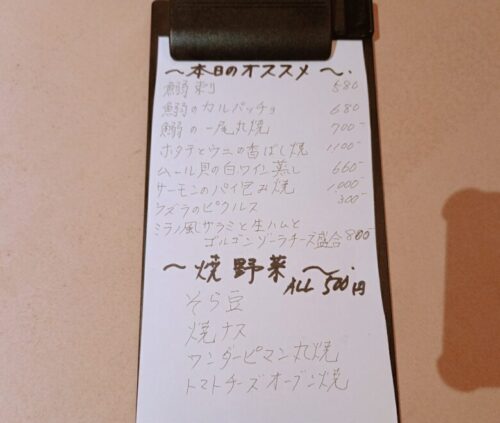 ～本日のオススメ～
鰯刺 580
鰯のカルパッチョ 680
鰯の一尾丸焼 700-
ホタテとウニの香ばし焼 1,100-
ムール貝の白ワイン蒸し 660-
サーモンのパイ包み焼 1,000-
ウズラのピクルス 300-
ミラノ風サラミと生ハムと
ゴルゴンゾーラチーズ盛合 800-
～焼野菜～
ALL 500円
そら豆
焼ナス
ワンダーピマン丸焼
トマトチーズオーブン焼